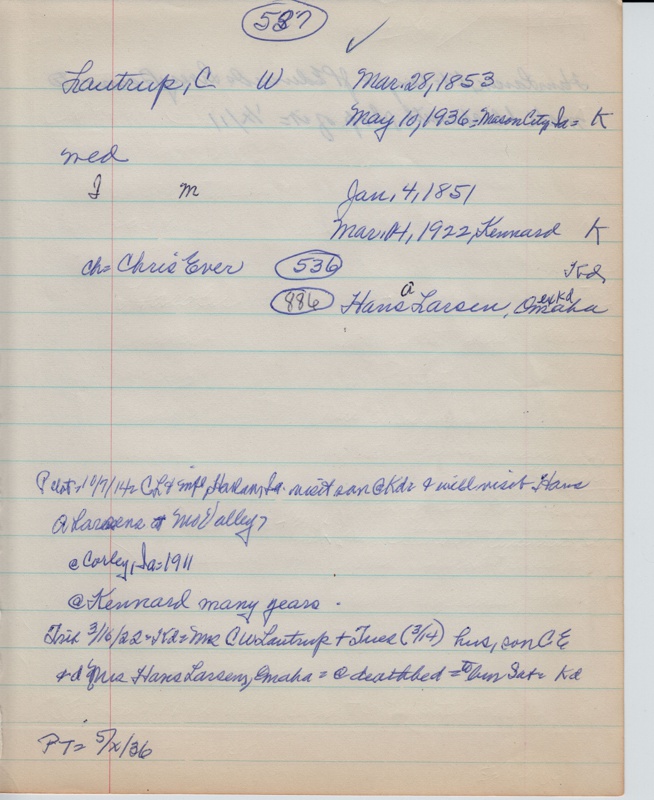 587
Lautrup, C W Mar. 28, 1853
May 10, 1936 = Mason City, Ia = K
wed
I m Jan, 4, 1851
Mar. 14, 1922, Kennard K
ch = Chris Ever 536 Kd,
886 Hans A Larsen, Omaha ex Kd
Pilot = 10/7/14 = C L & wife, Harlan, Ia. visit son @ Kd = & will visit Hans
A Larsens at Mo Valley
@ Corley, Ia = 1911
@ Kennard many years.
Trib 3/16/22 = Kd = Mrs C W Lautrup + Tues (3/14) hus, son C E
+ d Mrs Hans Larsen, Omaha = @ deathbed = to bur Sat = Kd
PT = 5/x/36